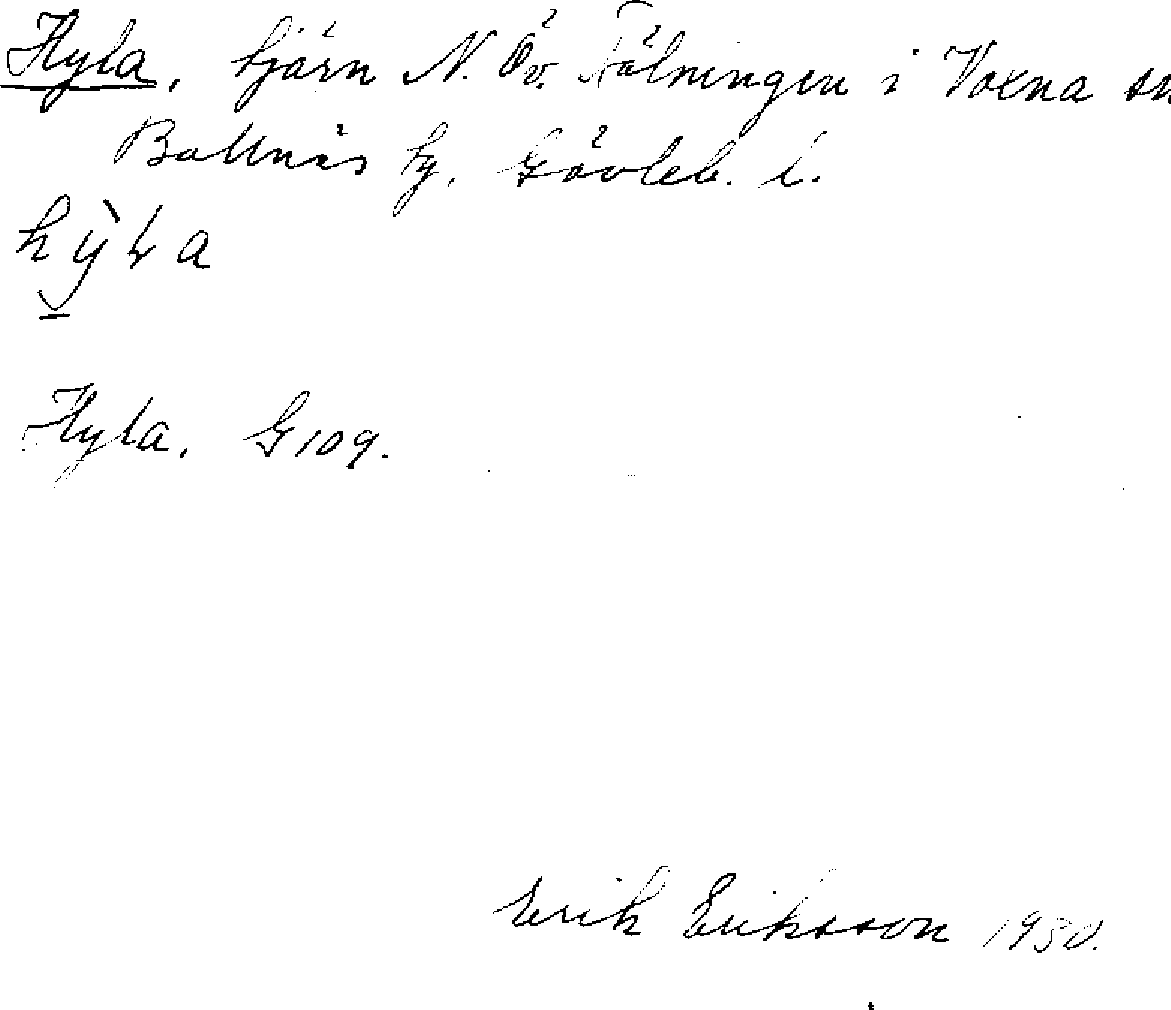 Hyla, tjärn N. Öv. Fälningen i Voxna sn
Bollnäs tg. Gävleb. l.
Hyla, G109.
Erik Eriksson 1930.